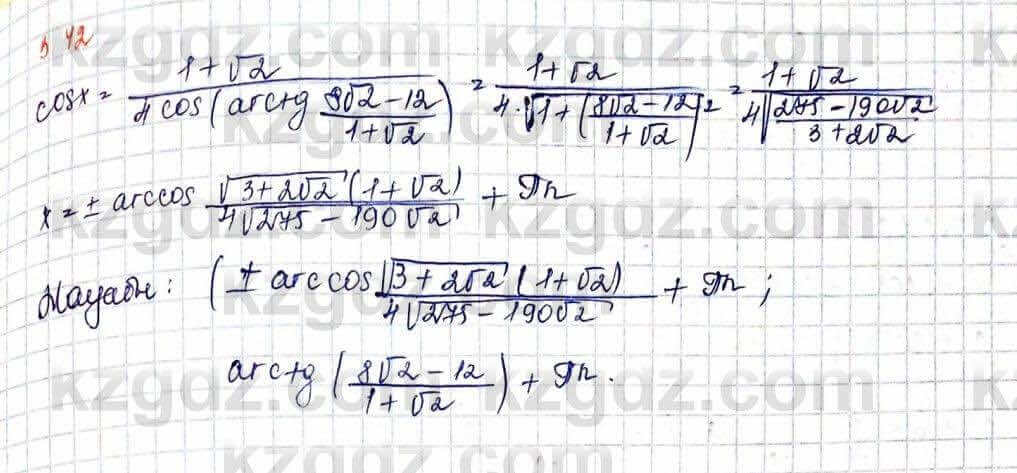 5.42
cosx = \frac{1+√2}{4 cos(arctg \frac{8√2-12}{1+√2})} = \frac{1+√2}{4·√(1+(\frac{8√2-12}{1+√2})^2)} = \frac{1+√2}{4√(\frac{275-190√2}{3+2√2})}
x = ± arccos \frac{√(3+2√2) (1+√2)}{4√(275-190√2)} + πn
Жауабы: (± arccos \frac{√(3+2√2) (1+√2)}{4√(275-190√2)} + πn ;
arctg (\frac{8√2-12}{1+√2}) + πn.
kzgdz.com